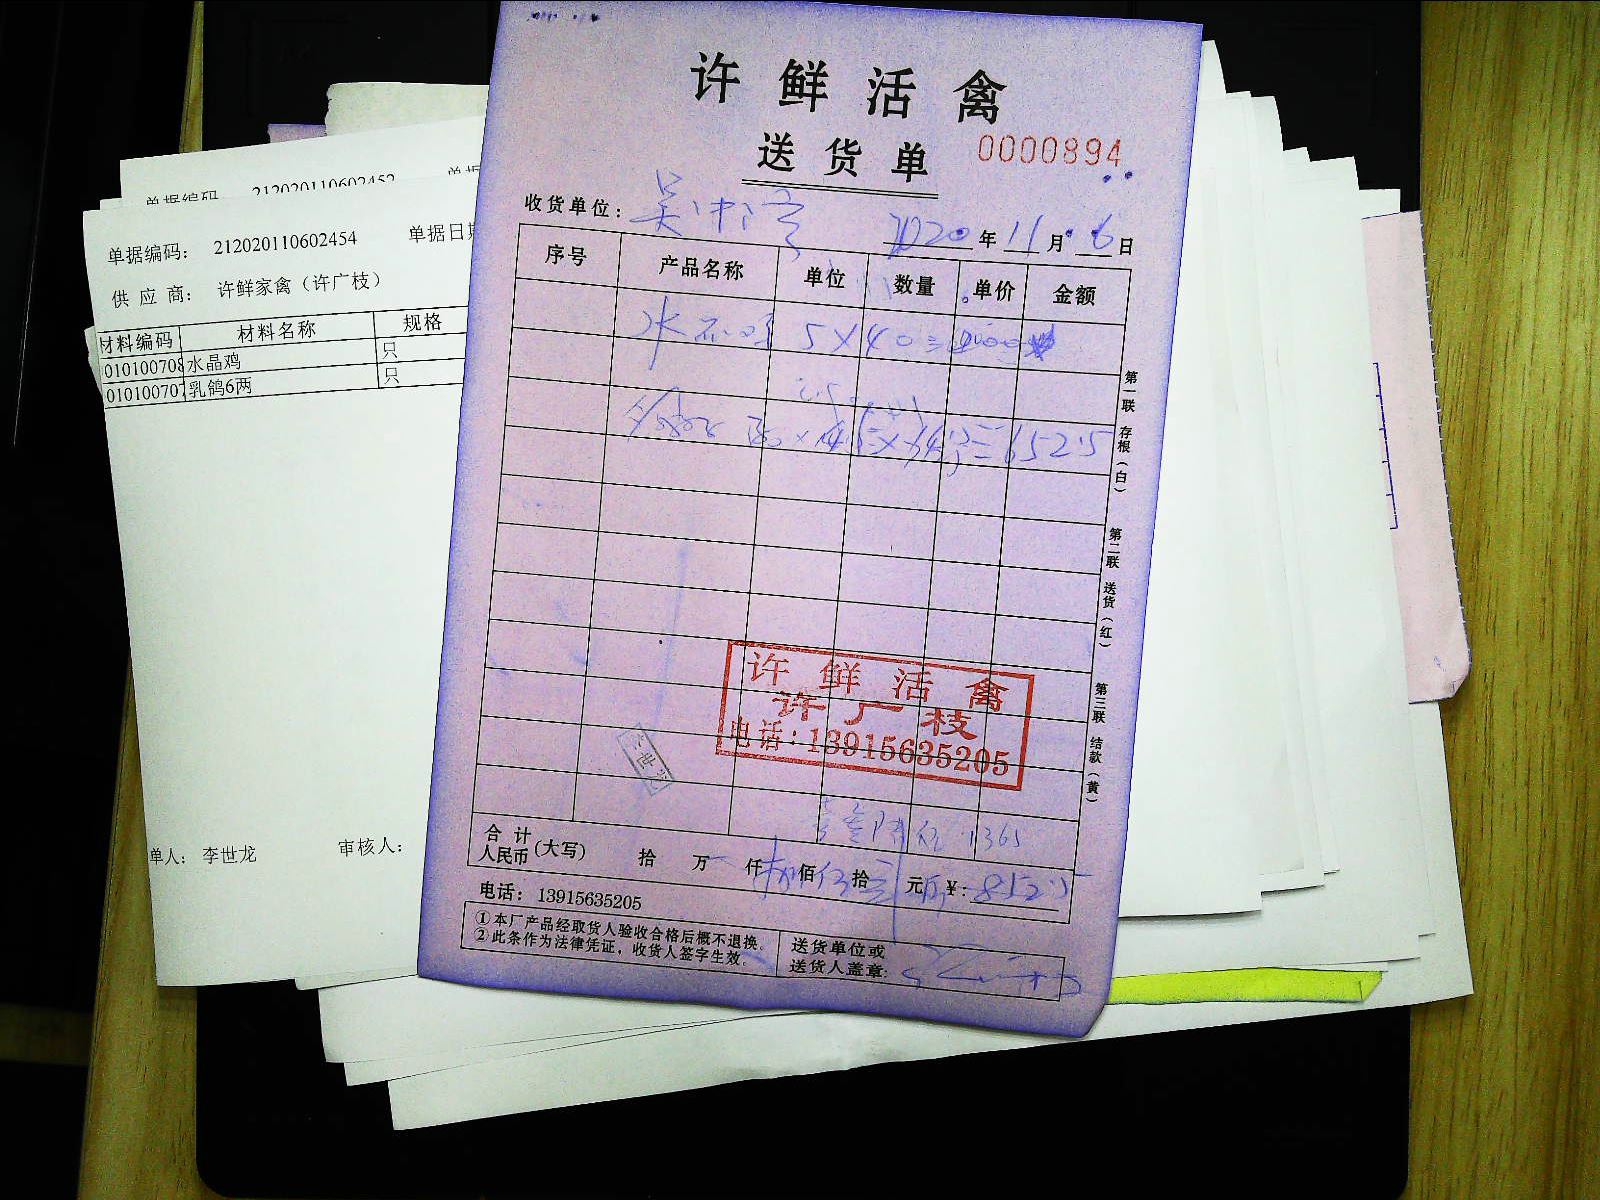 许鲜活禽
送货单
0000894
收货单位：
2020年11月6日
序号 产品名称 单位 数量 单价 金额
水 5×40=
=652.5
第一联 存根（白）
第二联 送货（红）
第三联 结款（黄）
许鲜活禽
许广枝
电话：13915635205
1365
合计
人民币（大写） 拾 万 仟 佰 拾 元 ¥：852.5
电话：13915635205
①本厂产品经取货人验收合格后概不退换。
②此条作为法律凭证，收货人签字生效。
送货单位或
送货人盖章：
单据编码 212020110602452
单据编码： 212020110602454 单据日期
供应商： 许鲜家禽（许广枝）
材料编码 材料名称 规格
010100708 水晶鸡 只
010100707 乳鸽6两 只
单人： 李世龙 审核人：